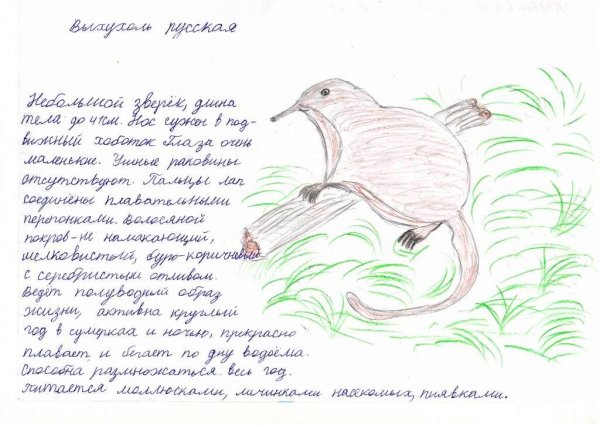 Выхухоль русская
Небольшой зверёк, длина
тела до 41см. Нос сужен в под-
вижный хоботок Глаза очень
маленькие. Ушные раковины
отсутствуют. Пальцы лап
соединены плавательными
перепонками. Волосяной
покров-не намакающий,
шелковистый, буро-коричневый
с серебристым отливом.
Ведёт полуводный образ
жизни, активна круглый
год в сумерках и ночью, прекрасно
плавает и бегает по дну водоёма.
Способна размножаться весь год.
Питается моллюсками, личинками насекомых, пиявками.